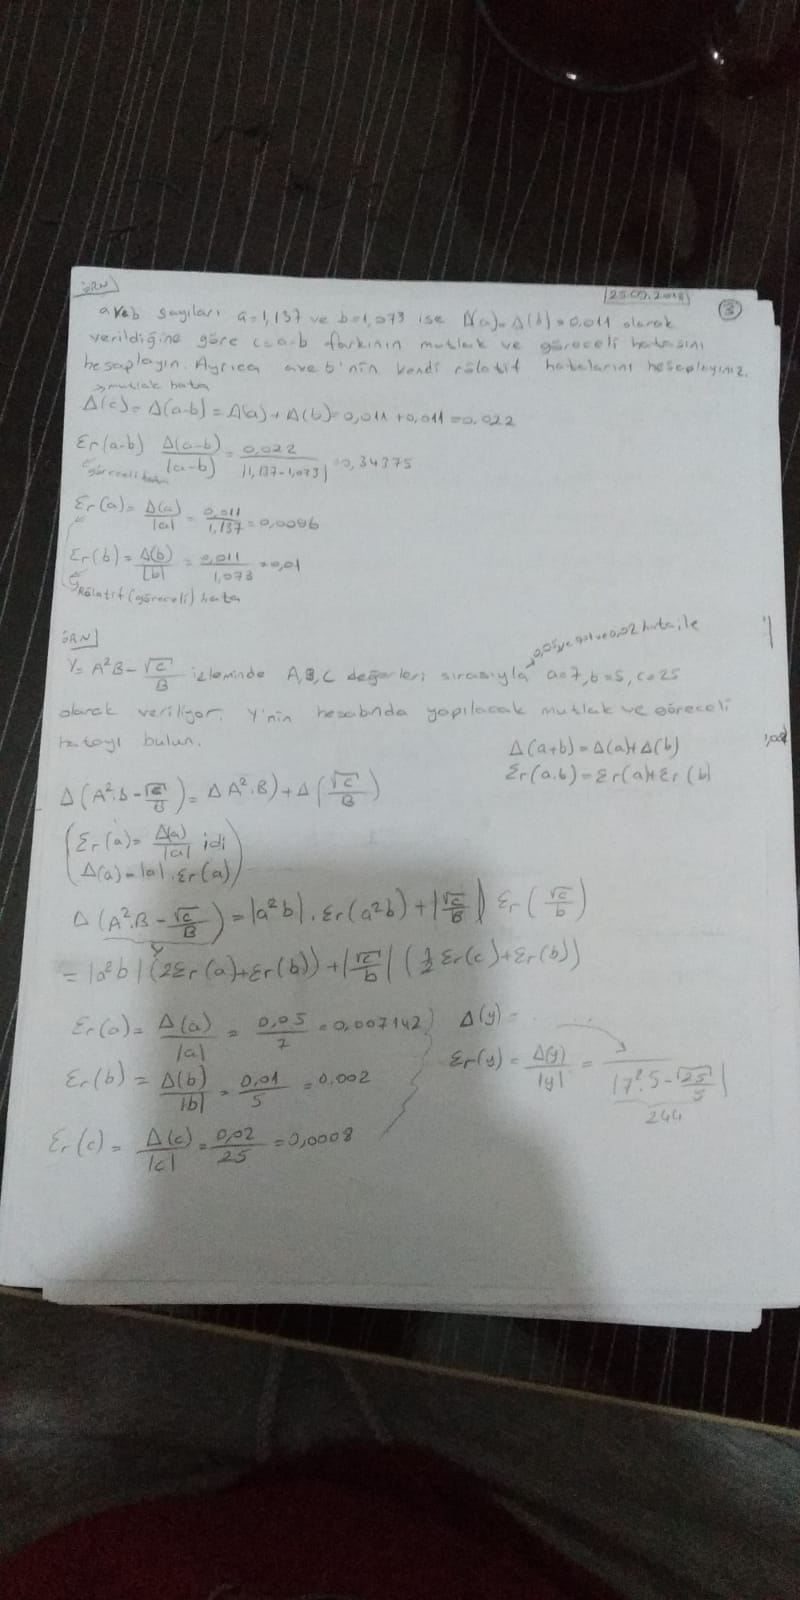 ÖRN
25.09.2018
3
a ve b sayıları a=1,137 ve b=1,073 ise Δ(a)=Δ(b)=0,011 olarak
verildiğine göre c=a-b farkının mutlak ve göreceli hatasını
hesaplayın. Ayrıca a ve b'nin kendi rölatif hatalarını hesaplayınız.
→ mutlak hata
Δ(c)=Δ(a-b)=Δ(a)+Δ(b)=0,011+0,011=0,022
Er(a-b) Δ(a-b)/|a-b| = 0,022/|1,137-1,073| = 0,34375
göreceli hata
Er(a)= Δ(a)/|a| = 0,011/1,137 = 0,0096
Er(b)= Δ(b)/|b| = 0,011/1,073 = 0,01
Rölatif (göreceli) hata
ÖRN
0,05 ve 0,02 hata ile
Y=A²B-√C/B işleminde A,B,C değerleri sırasıyla a=7, b=5, c=25
olarak veriliyor. Y'nin hesabında yapılacak mutlak ve göreceli
hatayı bulun.
Δ(a+b)=Δ(a)+Δ(b)
Er(a.b)=Er(a)+Er(b)
Δ(A².B-√C/B)=ΔA².B)+Δ(√C/B)
(Er(a)=Δ(a)/|a| idi
Δ(a)=|a|.Er(a))
Δ(A².B-√C/B)=|a²b|.Er(a²b)+|√C/B| Er(√C/b)
Y
=|a²b|(2Er(a)+Er(b))+|√C/b|(1/2 Er(c)+Er(b))
Er(a)= Δ(a)/|a| = 0,05/7 = 0,007142
Δ(y)=
Er(b)= Δ(b)/|b| = 0,01/5 = 0,002
Er(y)= Δ(y)/|y| = /|7².5-√25/5|
244
Er(c)= Δ(c)/|c| = 0,02/25 = 0,0008